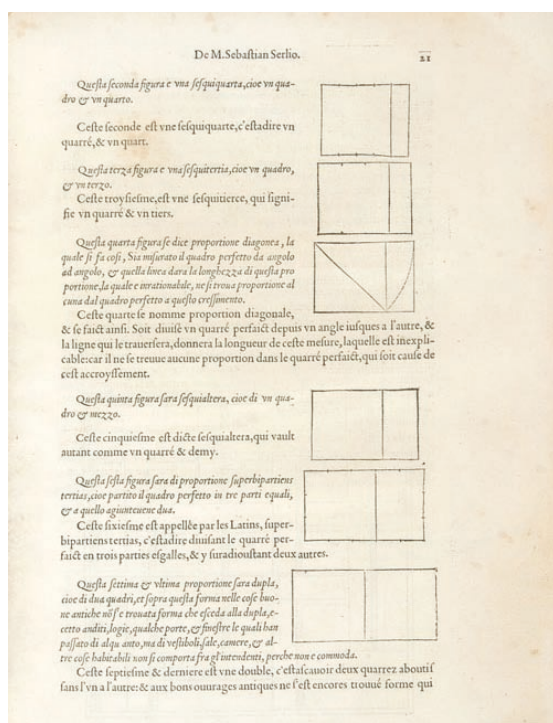 De M. Sebaſtian Serlio.
21
Queſta ſeconda figura e vna ſeſquiquarta, cioe vn qua-
dro & vn quarto.
Ceſte ſeconde eſt vne ſeſquiquarte, c'eſtadire vn
quarré, & vn quart.
Queſta terza figura e vna ſeſquitertia, cioe vn quadro,
& vn terzo.
Ceſte troyſieſme, eſt vne ſeſquitierce, qui ſigni-
fie vn quarré & vn tiers.
Queſta quarta figura ſe dice proportione diagonea, la
quale ſi fa coſi, Sia miſurato il quadro perfetto da angolo
ad angolo, & quella linea dara la longhezza di queſta pro
portione, la quale e inrationabile, ne ſi troua proportione al
cuna dal quadro perfetto a queſto creſſimento.
Ceſte quarte ſe nomme proportion diagonale,
& ſe faict ainſi. Soit diuiſé vn quarré perfaict depuis vn angle iuſques a l'autre, &
la ligne qui le trauerſera, donnera la longueur de ceſte meſure, laquelle eſt inexpli-
cable: car il ne ſe treuue aucune proportion dans le quarré perfaict, qui ſoit cauſe de
ceſt accroyſſement.
Queſta quinta figura ſara ſeſquialtera, cioe di vn qua-
dro & mezzo.
Ceſte cinquieſme eſt dicte ſeſquialtera, qui vault
autant comme vn quarré & demy.
Queſta ſeſta figura ſara di proportione ſuperbipartiens
tertias, cioe partito il quadro perfetto in tre parti equali,
& a quello agiunteuene dua.
Ceſte ſixieſme eſt appellée par les Latins, ſuper-
bipartiens tertias, c'eſtadire diuiſant le quarré per-
faict en trois parties eſgalles, & y ſuradiouſtant deux autres.
Queſta ſettima & vltima proportione ſara dupla,
cioe di dua quadri, et ſopra queſta forma nelle coſe buo-
ne antiche nõ ſ'e trouata forma che eſceda alla dupla, e-
cetto anditi, logie, qualche porte, & fineſtre le quali han
paſſato di alqu anto, ma di veſtiboli, ſale, camere, & al-
tre coſe habitabili non ſi comporta fra gl'intendenti, perche non e commoda.
Ceſte ſeptieſme & derniere eſt vne double, c'eſtaſcauoir deux quarrez aboutiſ
ſans l'vn a l'autre: & aux bons ouurages antiques ne ſ'eſt encores trouué forme qui